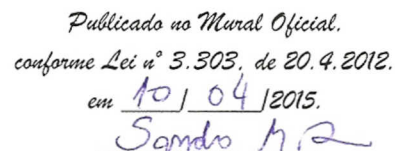 Publicado no Mural Oficial.
conforme Lei nº 3.303, de 20.4.2012.
em 10 / 04 /2015.
Sandro